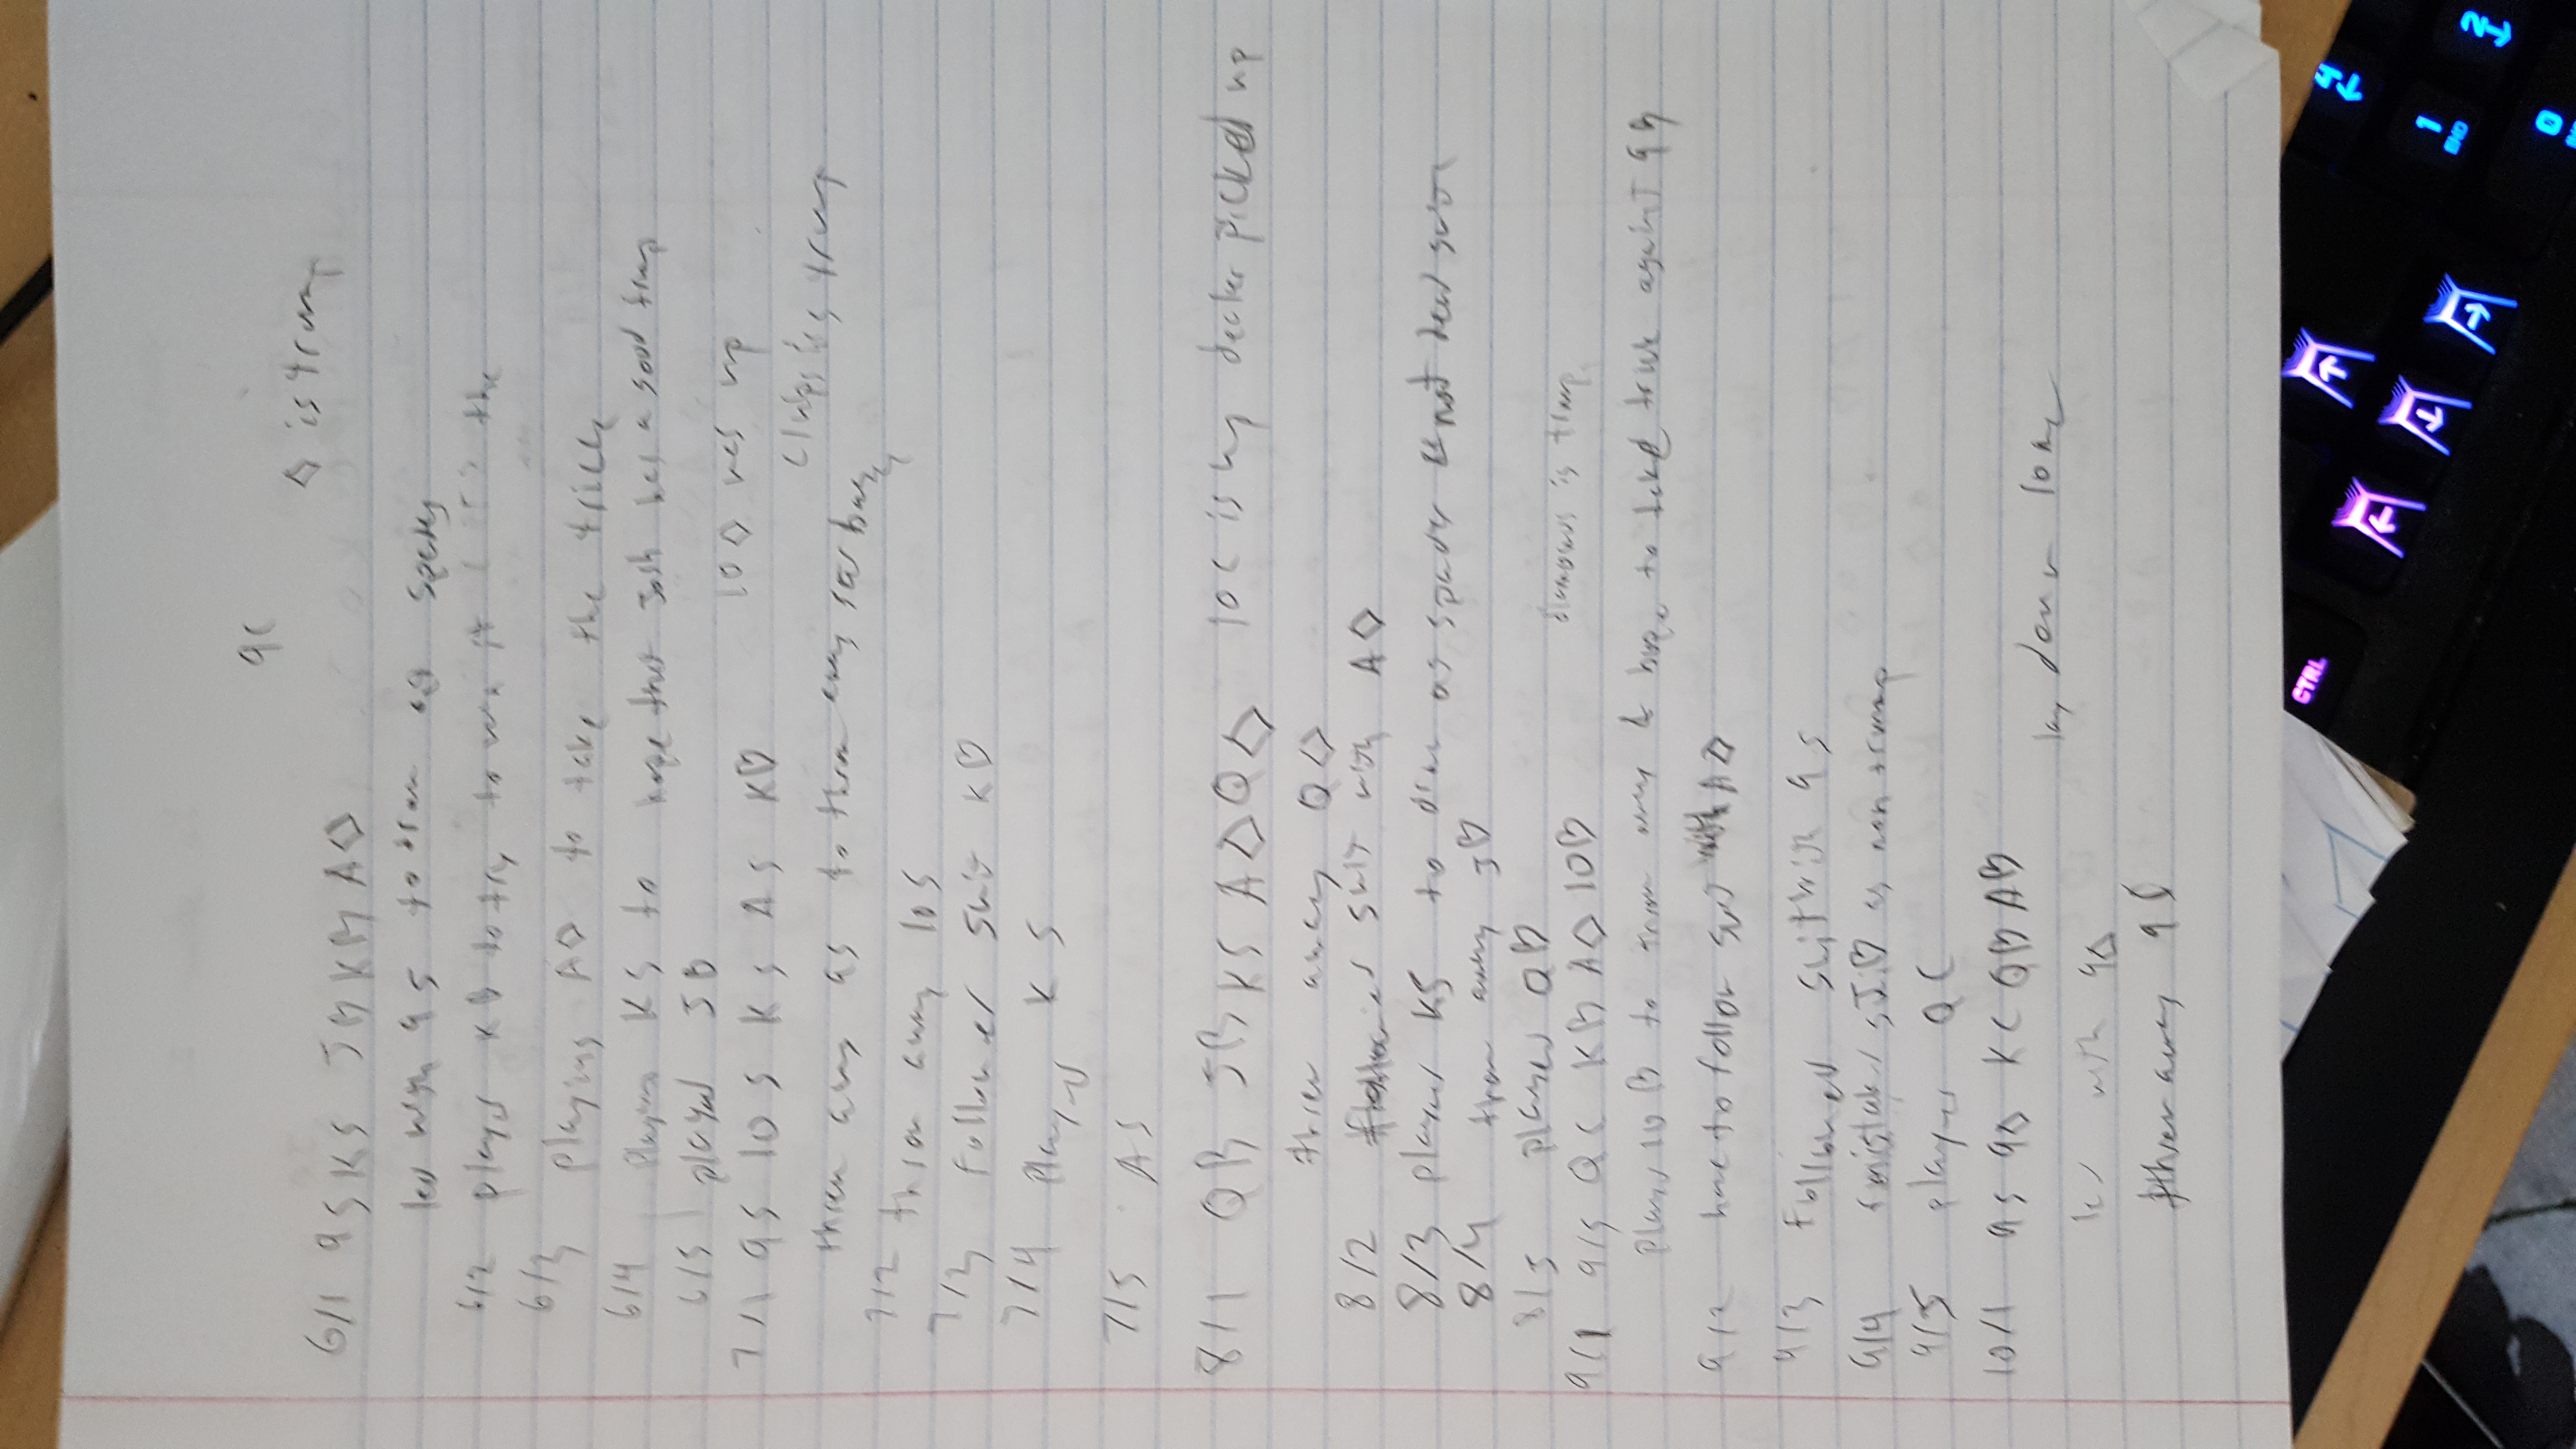 9C
◇ is trump
6/1 9S KS J♡ K♡ A◇
led with 9S to draw out spades
6/2 played K♡ to try to win it the
6/3 playing A◇ to take the trick
6/4 playing KS to hope that Josh has a good trump
6/5 played J♡
10◇ was up
7/1 9S 10S KS AS K♡
Clubs is trump
threw away 9S to throw away
7/2 throw away 10S
7/3 followed suit K♡
7/4 played KS
7/5 AS
8/1 Q♡ J♡ KS A◇ Q◇ 10C is up decker picked up
threw away Q◇
8/2 followed suit with A◇
8/3 played KS to draw as spades not lead suit
8/4 throw away J♡
8/5 played Q♡
diamonds is trump
9/1 9/S QC K♡ A◇ 10♡
played 10♡ to throw away & hope to take trick against 9♡
9/2 have to follow suit with A◇
9/3 Followed suit with 9S
9/4 mistakes J♡ as non trump
9/5 played QC
10/1 9S 9◇ KC Q♡ A♡
lay down
led with 9◇
threw away 9S
CTRL
↑
←
↓
→
4
←
1
END
2
↓
0